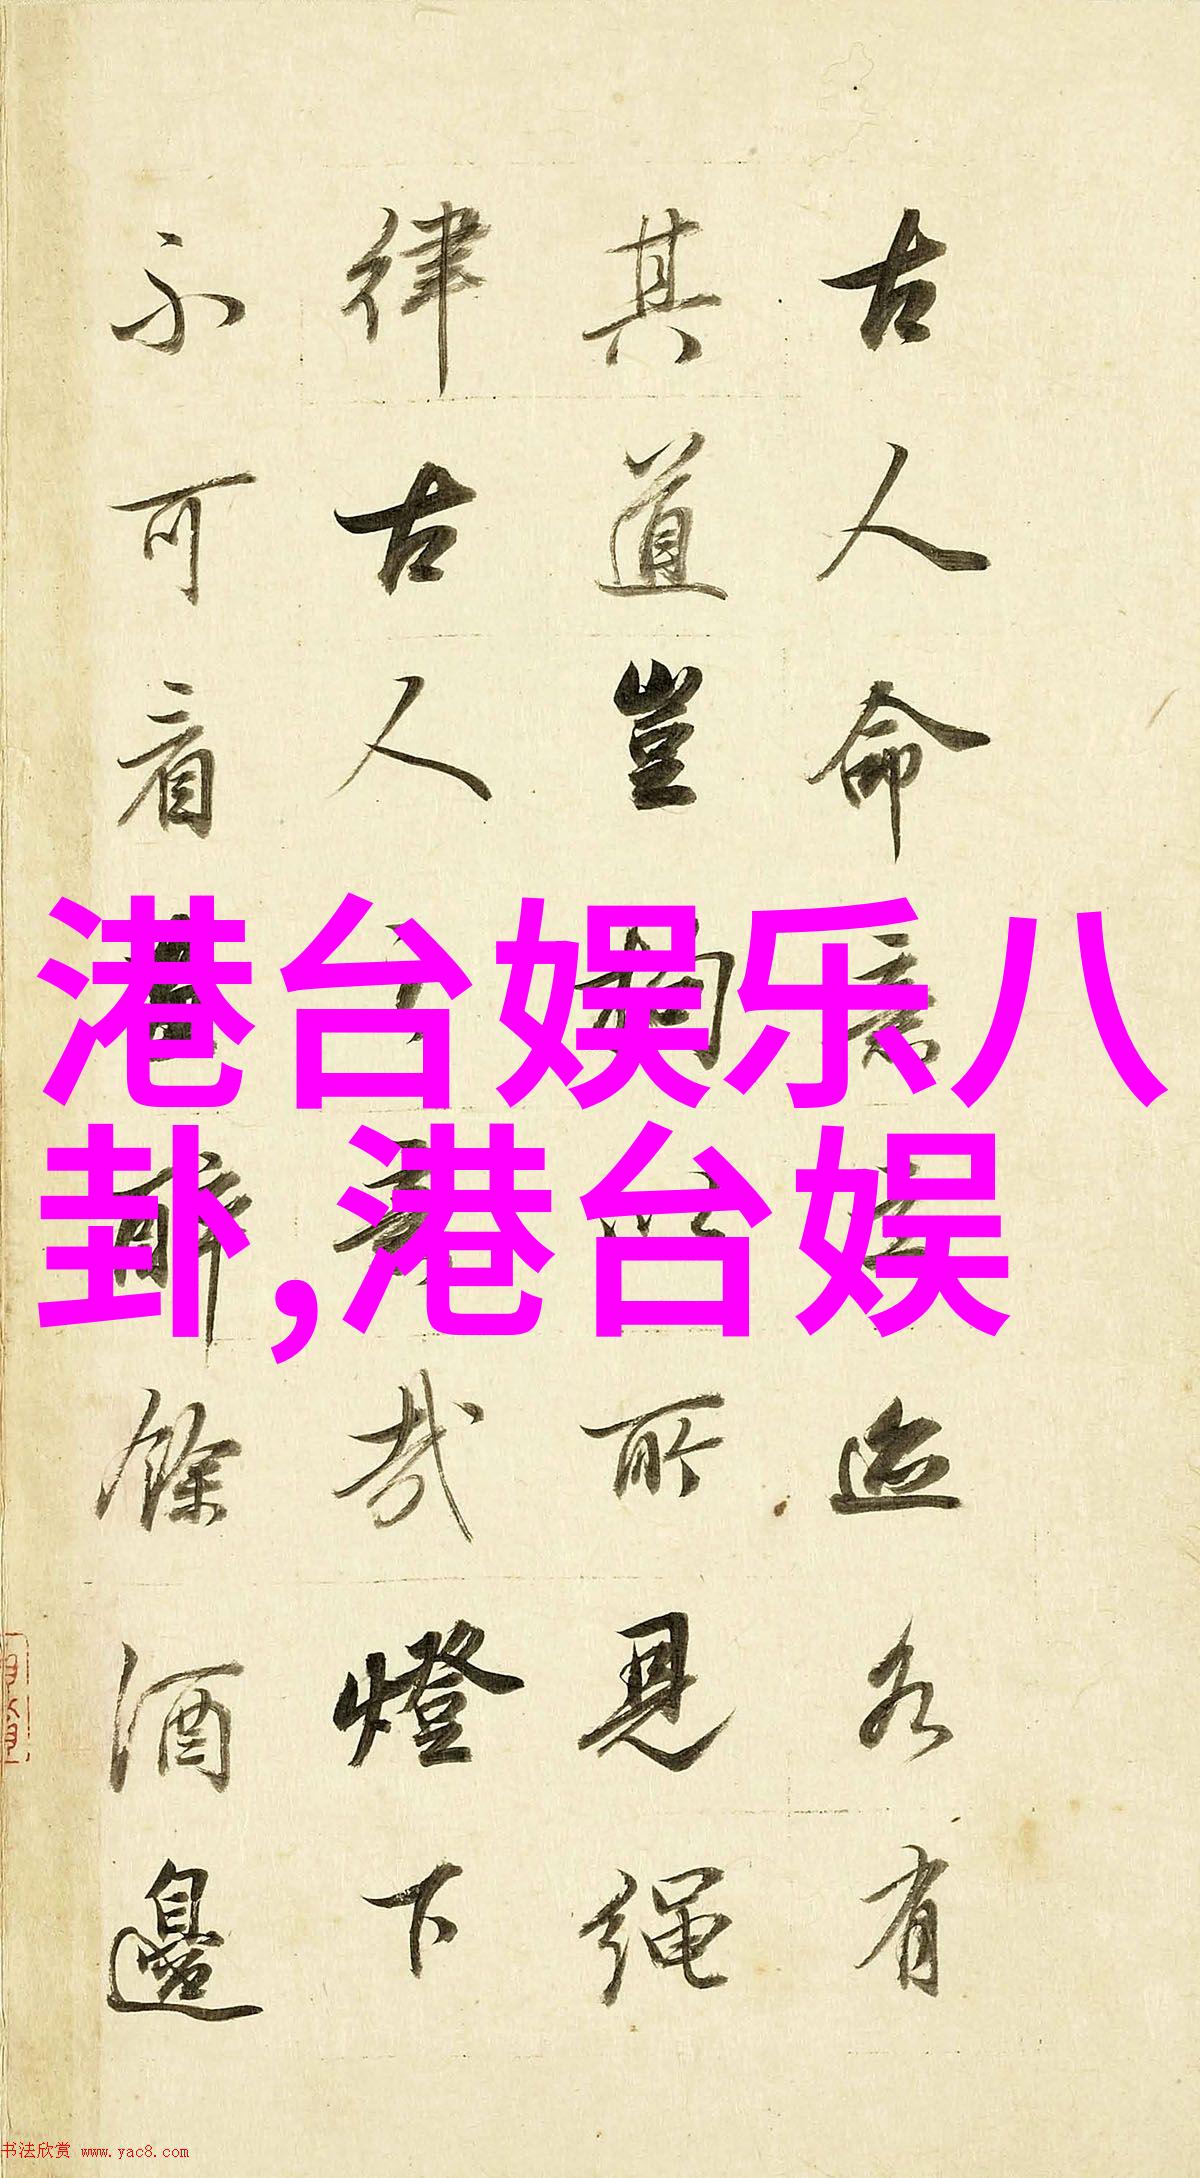 古人命意迹各有
其道豈拘以所見繩
律古人哉燈下
不可看書醉餘酒邊
港台娱乐八
卦,港台娱
书法欣赏 www.yac8.com